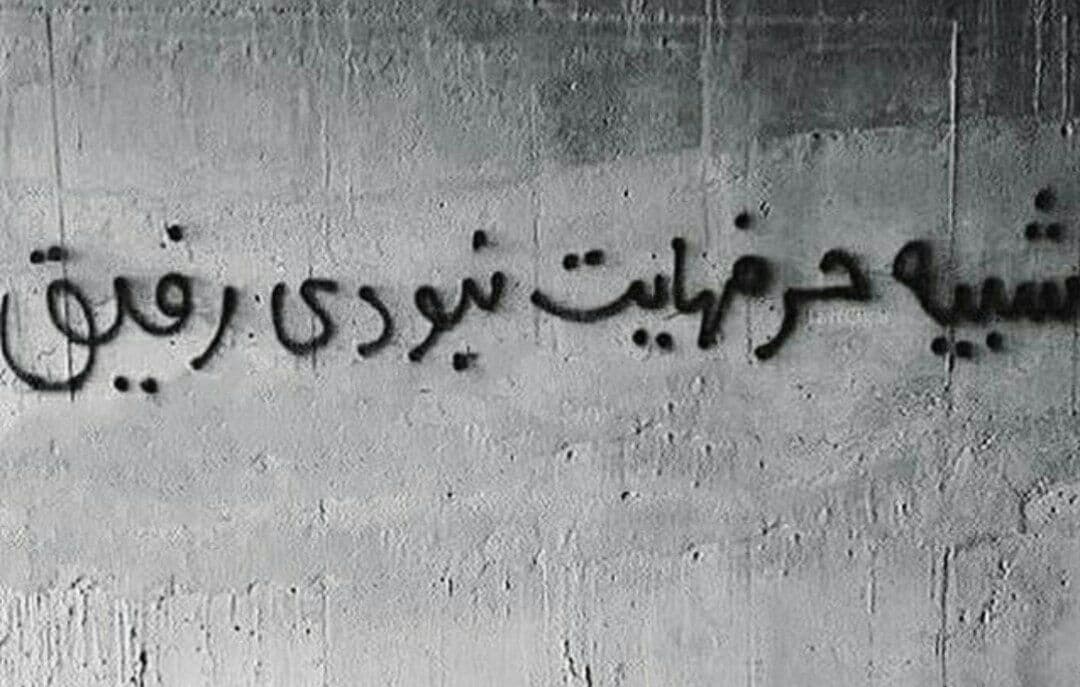 شبیه حرفهایت نبودی رفیق